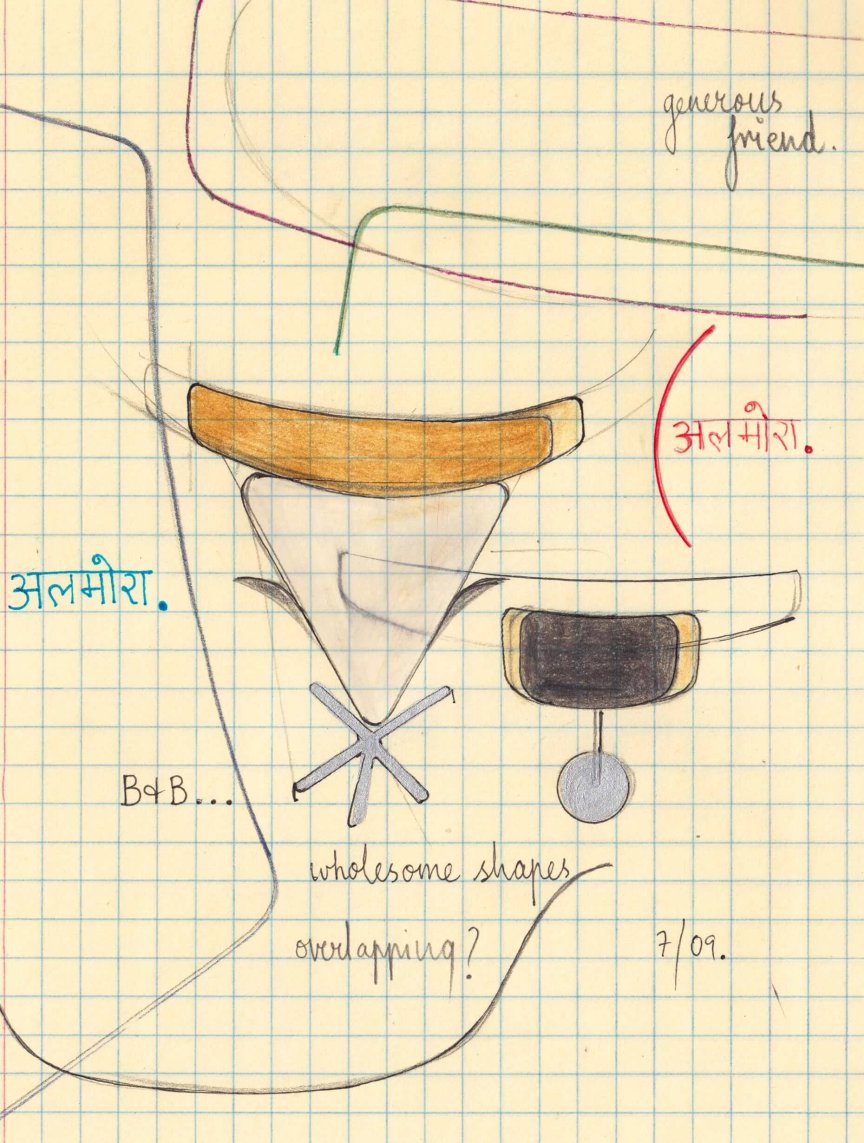 generous
friend.
अलमोरा.
अलमोरा.
B&B...
wholesome shapes
overlapping?
7/09.